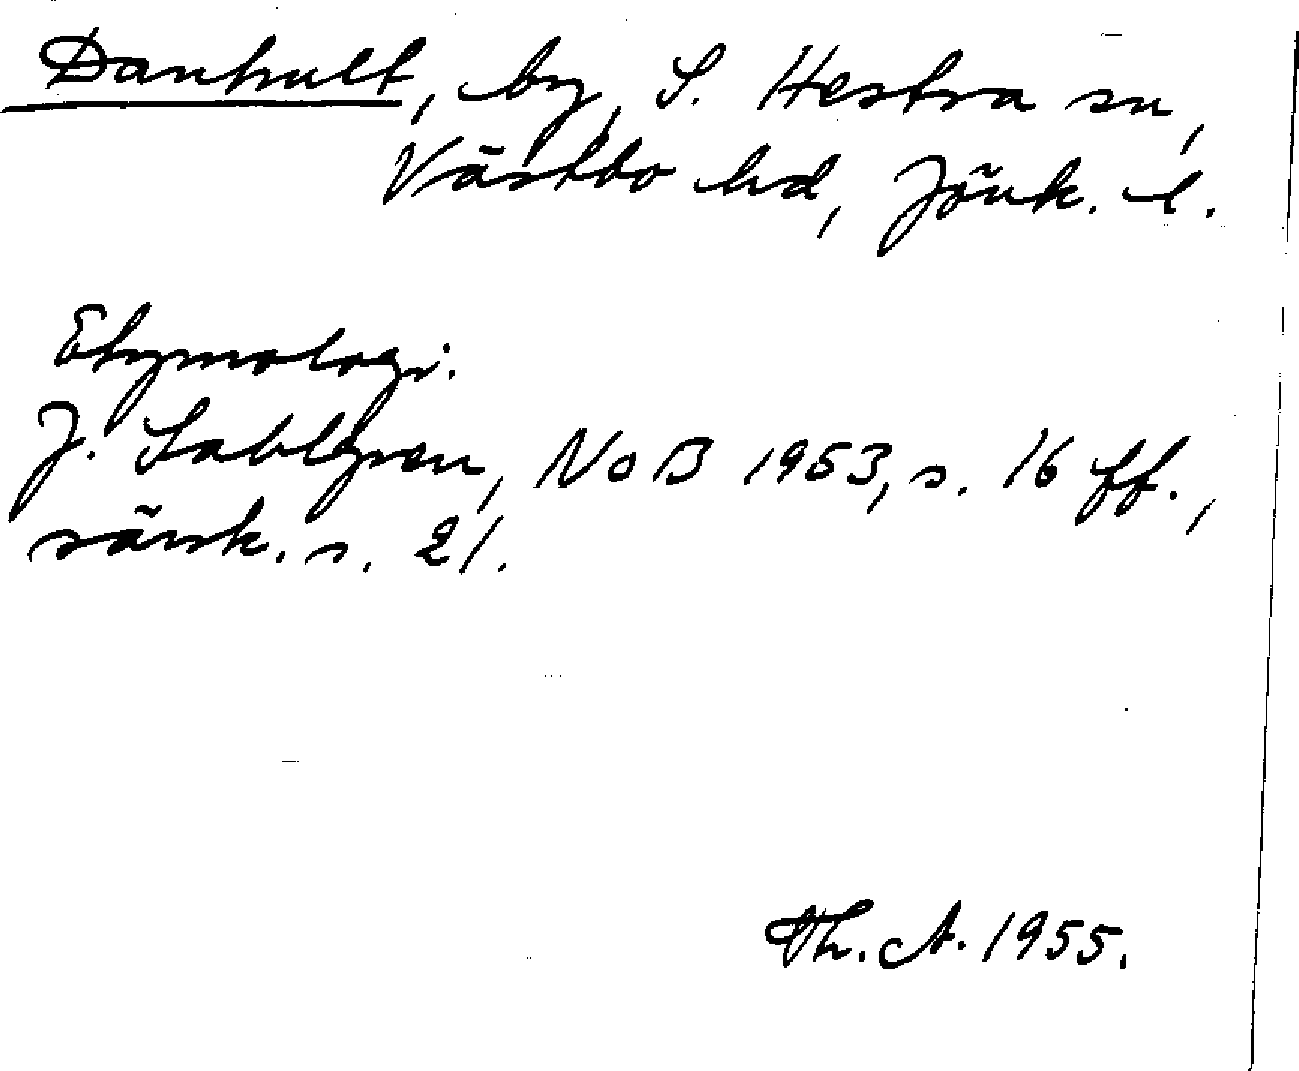 Danhult, by, S. Hestra sn,
Västbo hd, Jönk. l.
Etymologi.
J. Sahlgren, NoB 1953, s. 16 ff.,
särsk. s. 21.
Th. A. 1955.